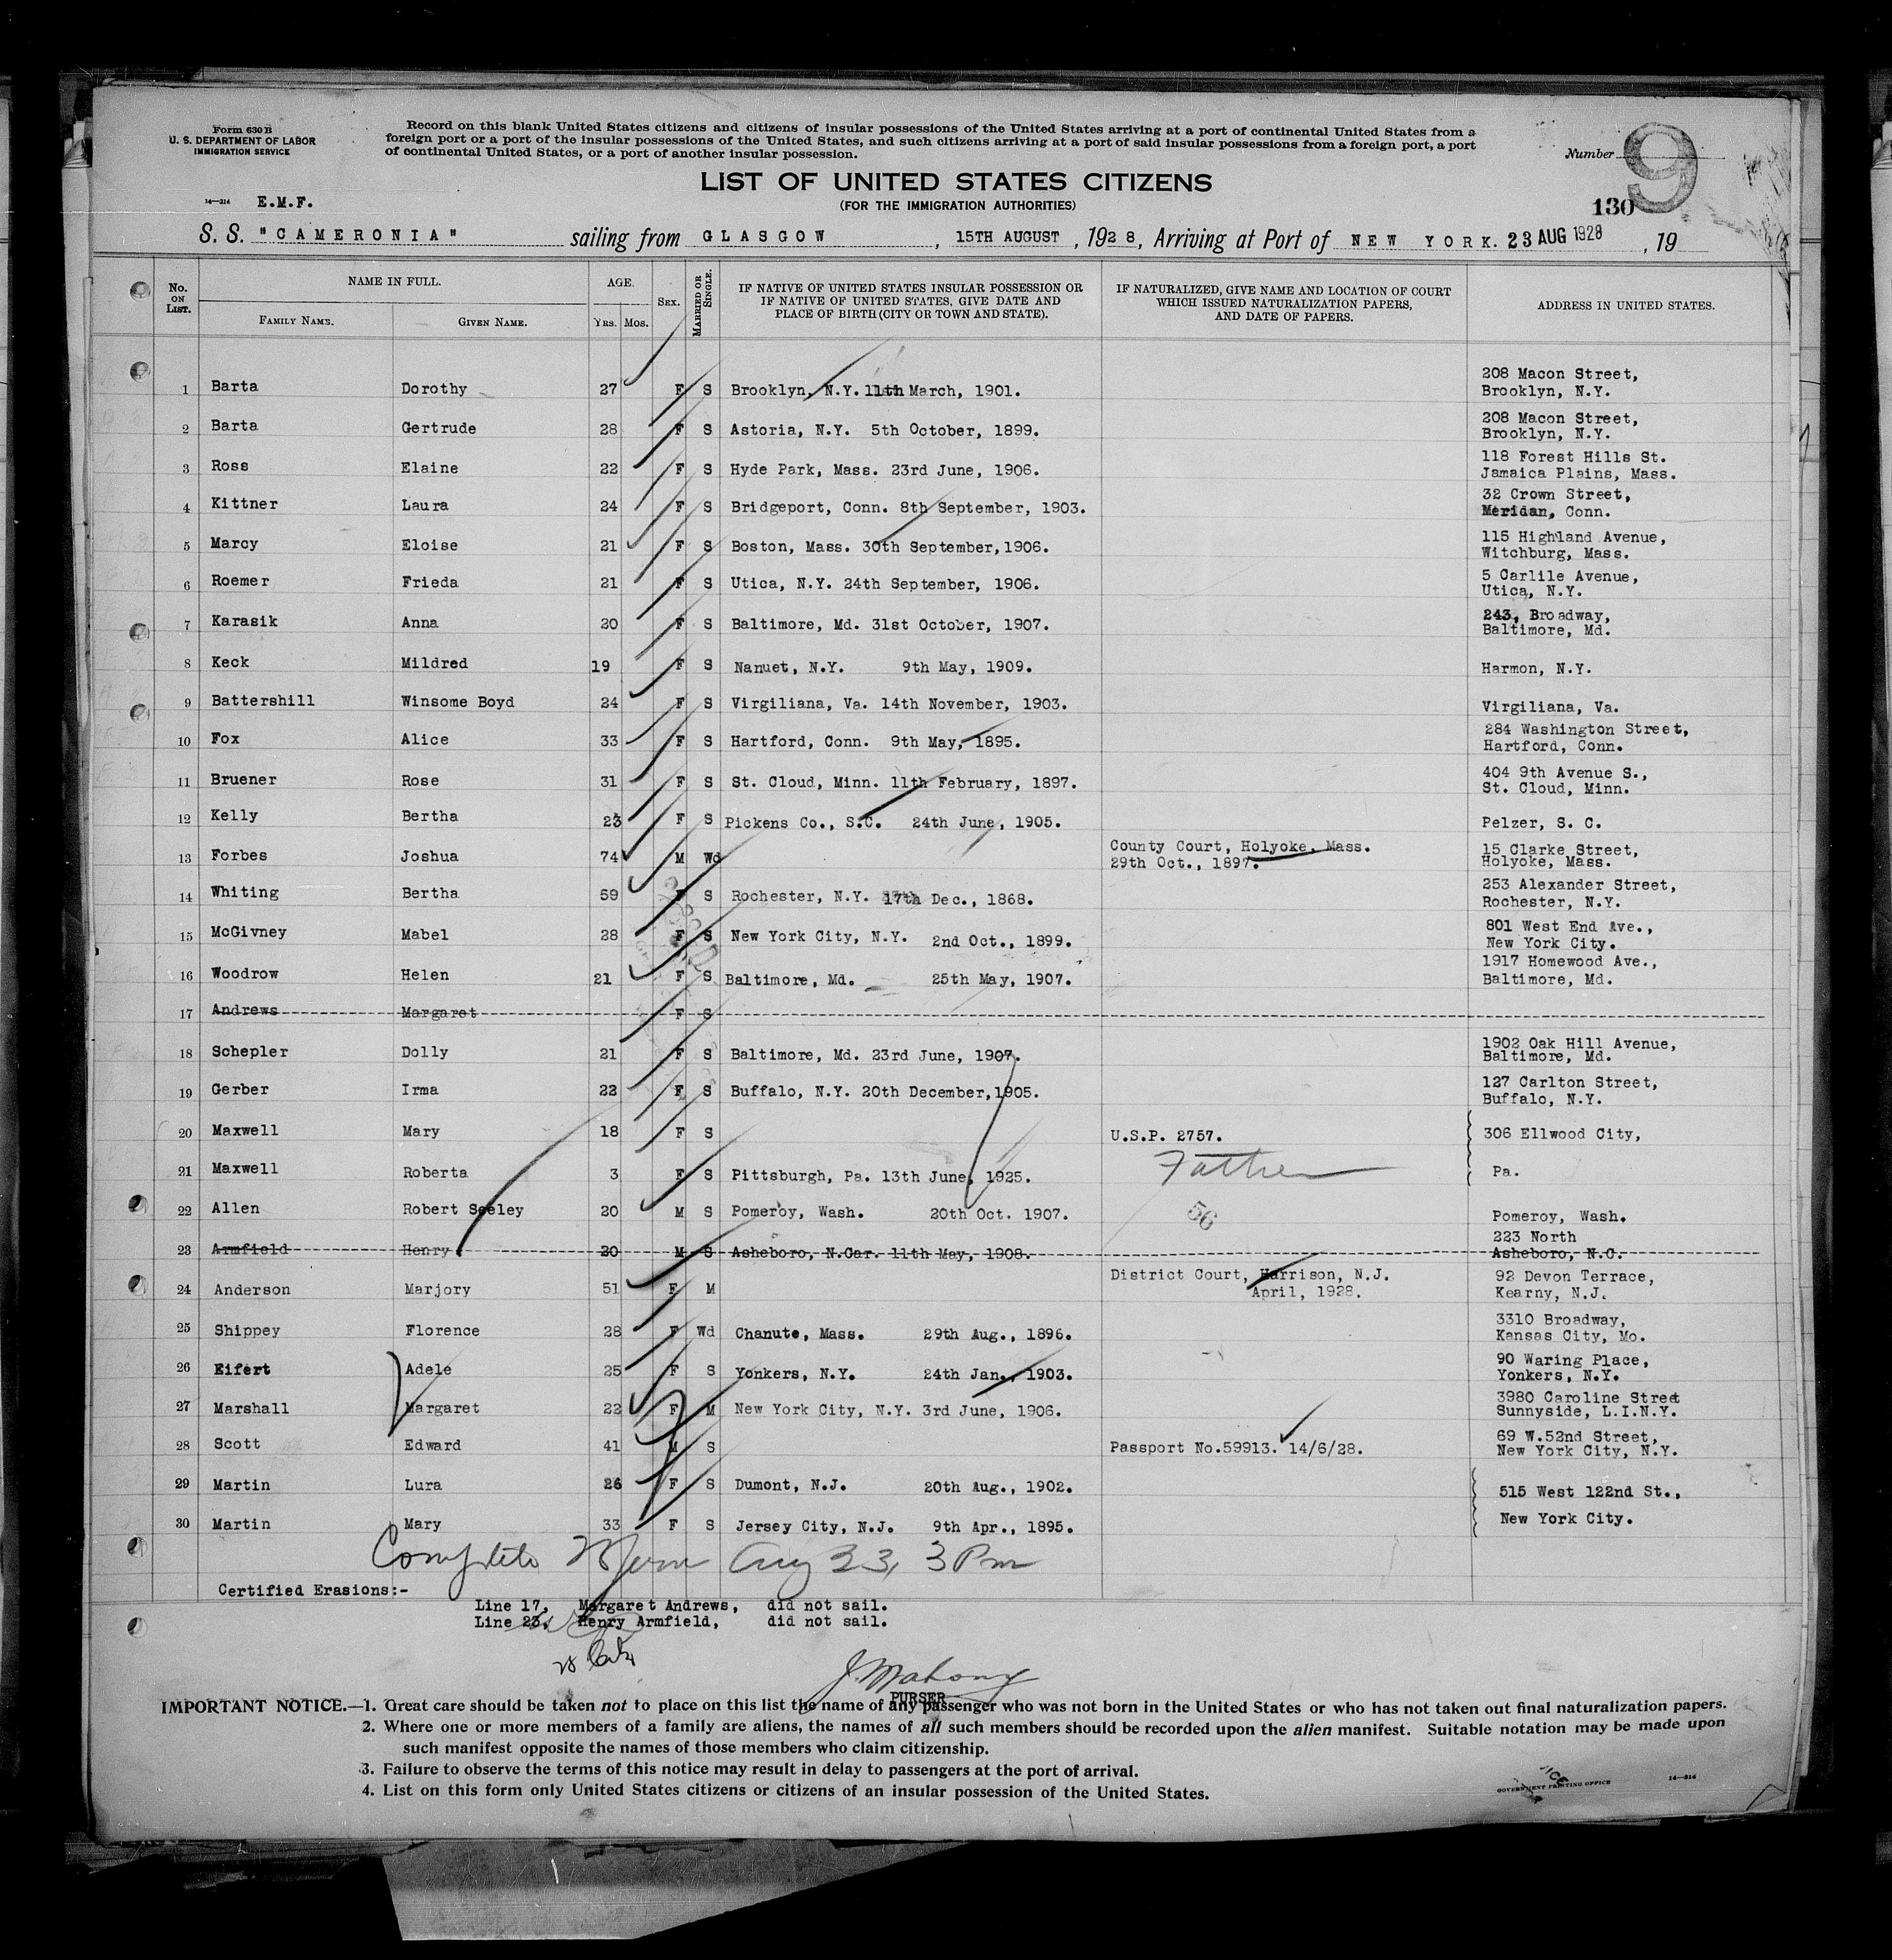 Form 630 B
U. S. DEPARTMENT OF LABOR
IMMIGRATION SERVICE
Record on this blank United States citizens and citizens of insular possessions of the United States arriving at a port of continental United States from a
foreign port or a port of the insular possessions of the United States, and such citizens arriving at a port of said insular possessions from a foreign port, a port
of continental United States, or a port of another insular possession.
Number 9
LIST OF UNITED STATES CITIZENS
(FOR THE IMMIGRATION AUTHORITIES)
14—214 E.M.F.
130
S. S. "CAMERONIA" sailing from GLASGOW, 15TH AUGUST, 1928, Arriving at Port of NEW YORK. 23 AUG 1928, 19
No. ON LIST.
NAME IN FULL.
FAMILY NAME. GIVEN NAME.
AGE.
YRS. MOS.
SEX.
MARRIED OR SINGLE.
IF NATIVE OF UNITED STATES INSULAR POSSESSION OR
IF NATIVE OF UNITED STATES, GIVE DATE AND
PLACE OF BIRTH (CITY OR TOWN AND STATE).
IF NATURALIZED, GIVE NAME AND LOCATION OF COURT
WHICH ISSUED NATURALIZATION PAPERS,
AND DATE OF PAPERS.
ADDRESS IN UNITED STATES.
1 Barta Dorothy 27 F S Brooklyn, N.Y. 11th March, 1901. 208 Macon Street, Brooklyn, N.Y.
2 Barta Gertrude 28 F S Astoria, N.Y. 5th October, 1899. 208 Macon Street, Brooklyn, N.Y.
3 Ross Elaine 22 F S Hyde Park, Mass. 23rd June, 1906. 118 Forest Hills St. Jamaica Plains, Mass.
4 Kittner Laura 24 F S Bridgeport, Conn. 8th September, 1903. 32 Crown Street, Meridan, Conn.
5 Marcy Eloise 21 F S Boston, Mass. 30th September, 1906. 115 Highland Avenue, Witchburg, Mass.
6 Roemer Frieda 21 F S Utica, N.Y. 24th September, 1906. 5 Carlile Avenue, Utica, N.Y.
7 Karasik Anna 20 F S Baltimore, Md. 31st October, 1907. 243, Broadway, Baltimore, Md.
8 Keck Mildred 19 F S Nanuet, N.Y. 9th May, 1909. Harmon, N.Y.
9 Battershill Winsome Boyd 24 F S Virgiliana, Va. 14th November, 1903. Virgiliana, Va.
10 Fox Alice 33 F S Hartford, Conn. 9th May, 1895. 284 Washington Street, Hartford, Conn.
11 Bruener Rose 31 F S St. Cloud, Minn. 11th February, 1897. 404 9th Avenue S., St. Cloud, Minn.
12 Kelly Bertha 23 F S Pickens Co., S.C. 24th June, 1905. Pelzer, S. C.
13 Forbes Joshua 74 M Wd County Court, Holyoke, Mass. 29th Oct., 1897. 15 Clarke Street, Holyoke, Mass.
14 Whiting Bertha 59 F S Rochester, N.Y. 17th Dec., 1868. 253 Alexander Street, Rochester, N.Y.
15 McGivney Mabel 28 F S New York City, N.Y. 2nd Oct., 1899. 801 West End Ave., New York City.
16 Woodrow Helen 21 F S Baltimore, Md. 25th May, 1907. 1917 Homewood Ave., Baltimore, Md.
17 Andrews Margaret F S
18 Schepler Dolly 21 F S Baltimore, Md. 23rd June, 1907. 1902 Oak Hill Avenue, Baltimore, Md.
19 Gerber Irma 22 F S Buffalo, N.Y. 20th December, 1905. 127 Carlton Street, Buffalo, N.Y.
20 Maxwell Mary 18 F S U.S.P. 2757. 306 Ellwood City,
21 Maxwell Roberta 3 F S Pittsburgh, Pa. 13th June, 1925. Father Pa.
22 Allen Robert Seeley 20 M S Pomeroy, Wash. 20th Oct. 1907. 56 Pomeroy, Wash.
23 Armfield Henry 20 M S Asheboro, N.Car. 11th May, 1908. 223 North Asheboro, N.C.
24 Anderson Marjory 51 F M District Court, Harrison, N.J. April, 1928. 92 Devon Terrace, Kearny, N.J.
25 Shippey Florence 28 F Wd Chanute, Mass. 29th Aug., 1896. 3310 Broadway, Kansas City, Mo.
26 Eifert Adele 25 F S Yonkers, N.Y. 24th Jan., 1903. 90 Waring Place, Yonkers, N.Y.
27 Marshall Margaret 22 F M New York City, N.Y. 3rd June, 1906. 3980 Caroline Street Sunnyside, L.I.N.Y.
28 Scott Edward 41 M S Passport No.59913. 14/6/28. 69 W.52nd Street, New York City, N.Y.
29 Martin Lura 26 F S Dumont, N.J. 20th Aug., 1902. 515 West 122nd St.,
30 Martin Mary 33 F S Jersey City, N.J. 9th Apr., 1895. New York City.
Complete Aug 23, 3 Pm
Certified Erasions:-
Line 17, Margaret Andrews, did not sail.
Line 23, Henry Armfield, did not sail.
28
J. Mahony
PURSER
IMPORTANT NOTICE.—1. Great care should be taken not to place on this list the name of any passenger who was not born in the United States or who has not taken out final naturalization papers.
2. Where one or more members of a family are aliens, the names of all such members should be recorded upon the alien manifest. Suitable notation may be made upon
such manifest opposite the names of those members who claim citizenship.
3. Failure to observe the terms of this notice may result in delay to passengers at the port of arrival.
4. List on this form only United States citizens or citizens of an insular possession of the United States.
GOVERNMENT PRINTING OFFICE 14—214